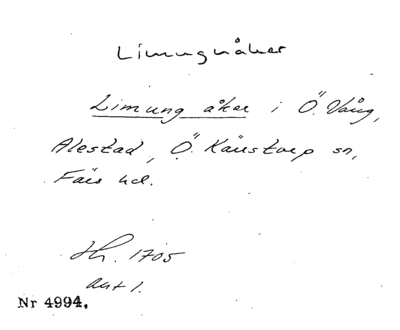 Limugnåker
Limung åker i Ö. Vång,
Alestad, Ö. Kärstorp sn,
Färs hd.
Hh. 1705
akt 1.
Nr 4994.